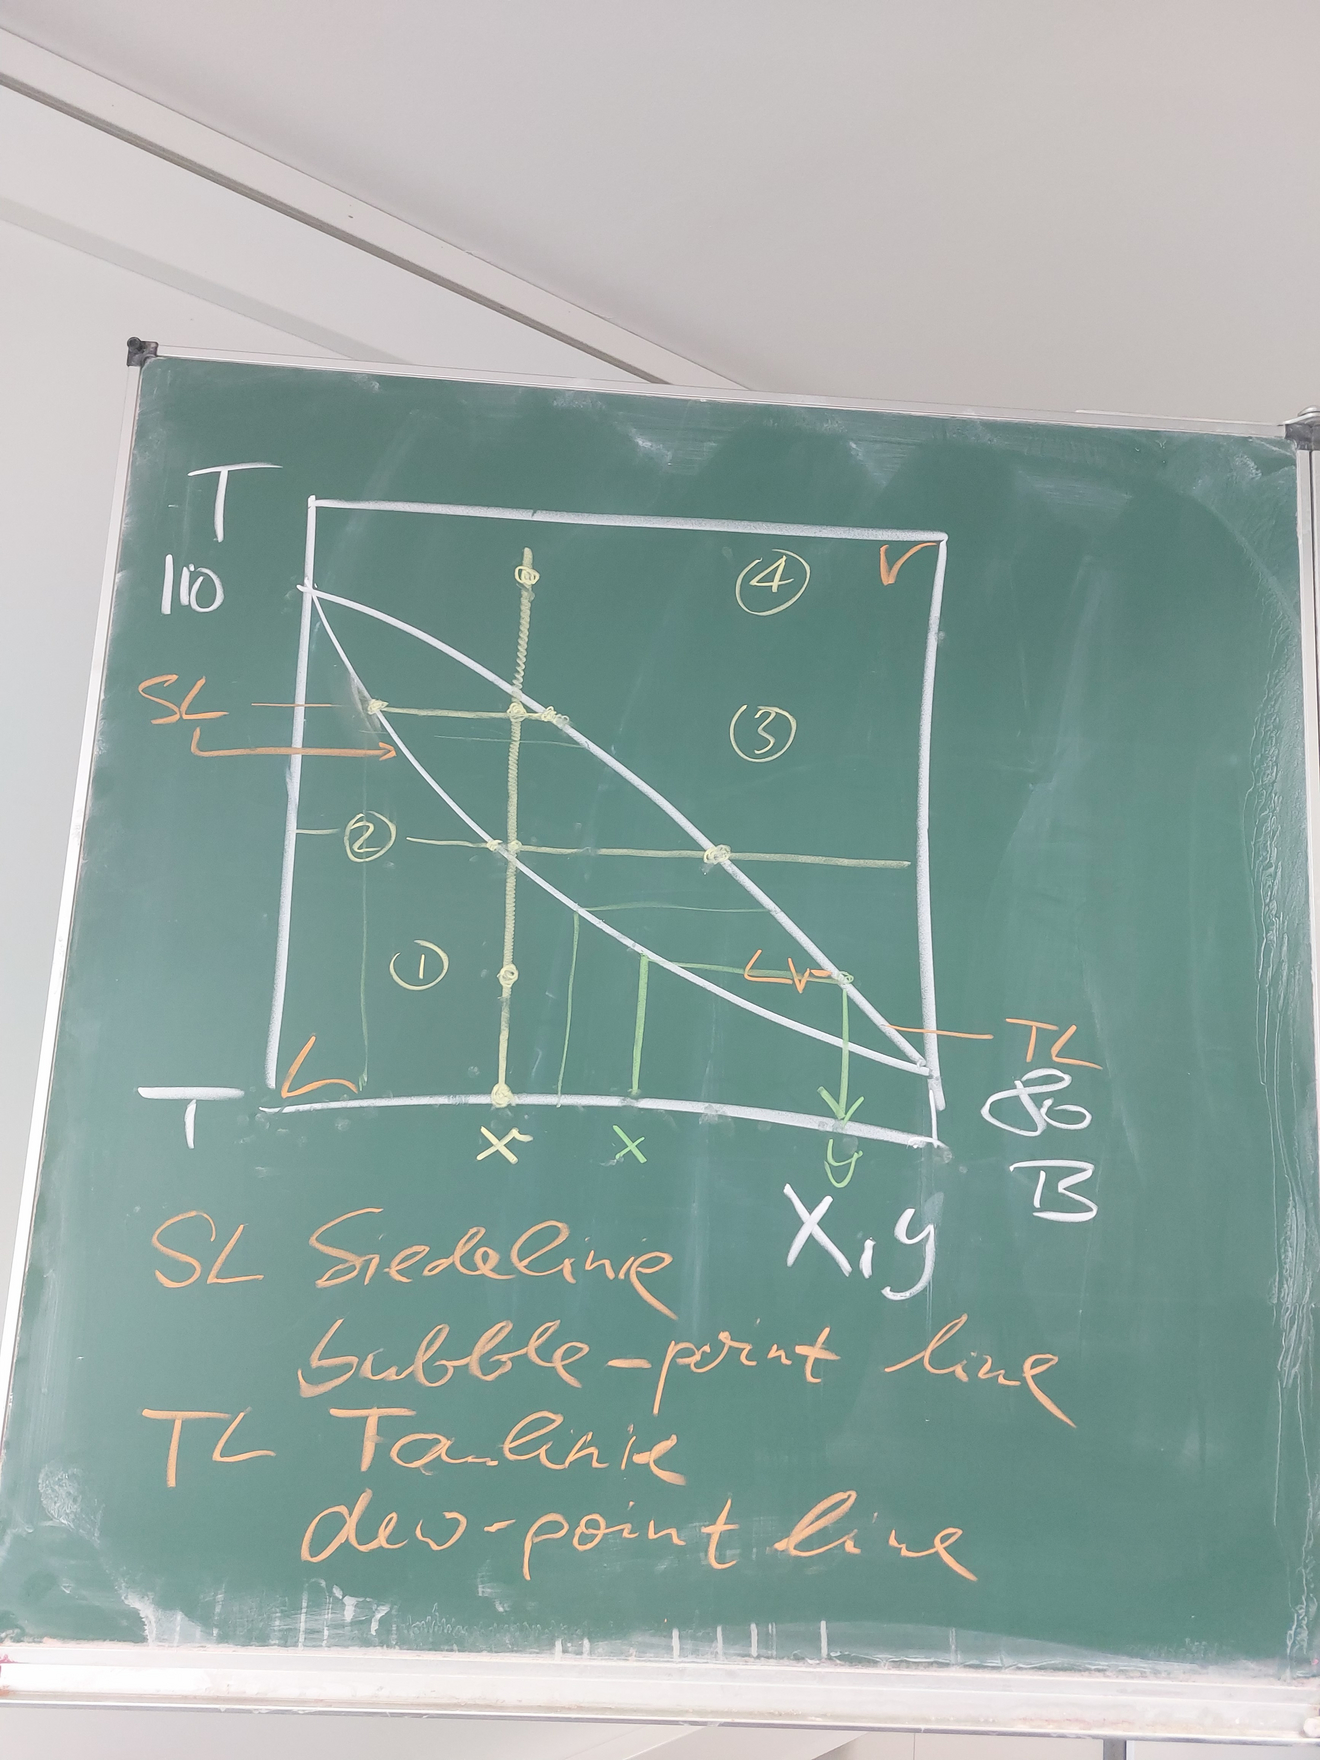 T
110
4
V
SL
3
2
1
LV
TL
L
80
T
x
x
y
B
x,y
SL Siedelinie
bubble-point line
TL Taulinie
dew-point line